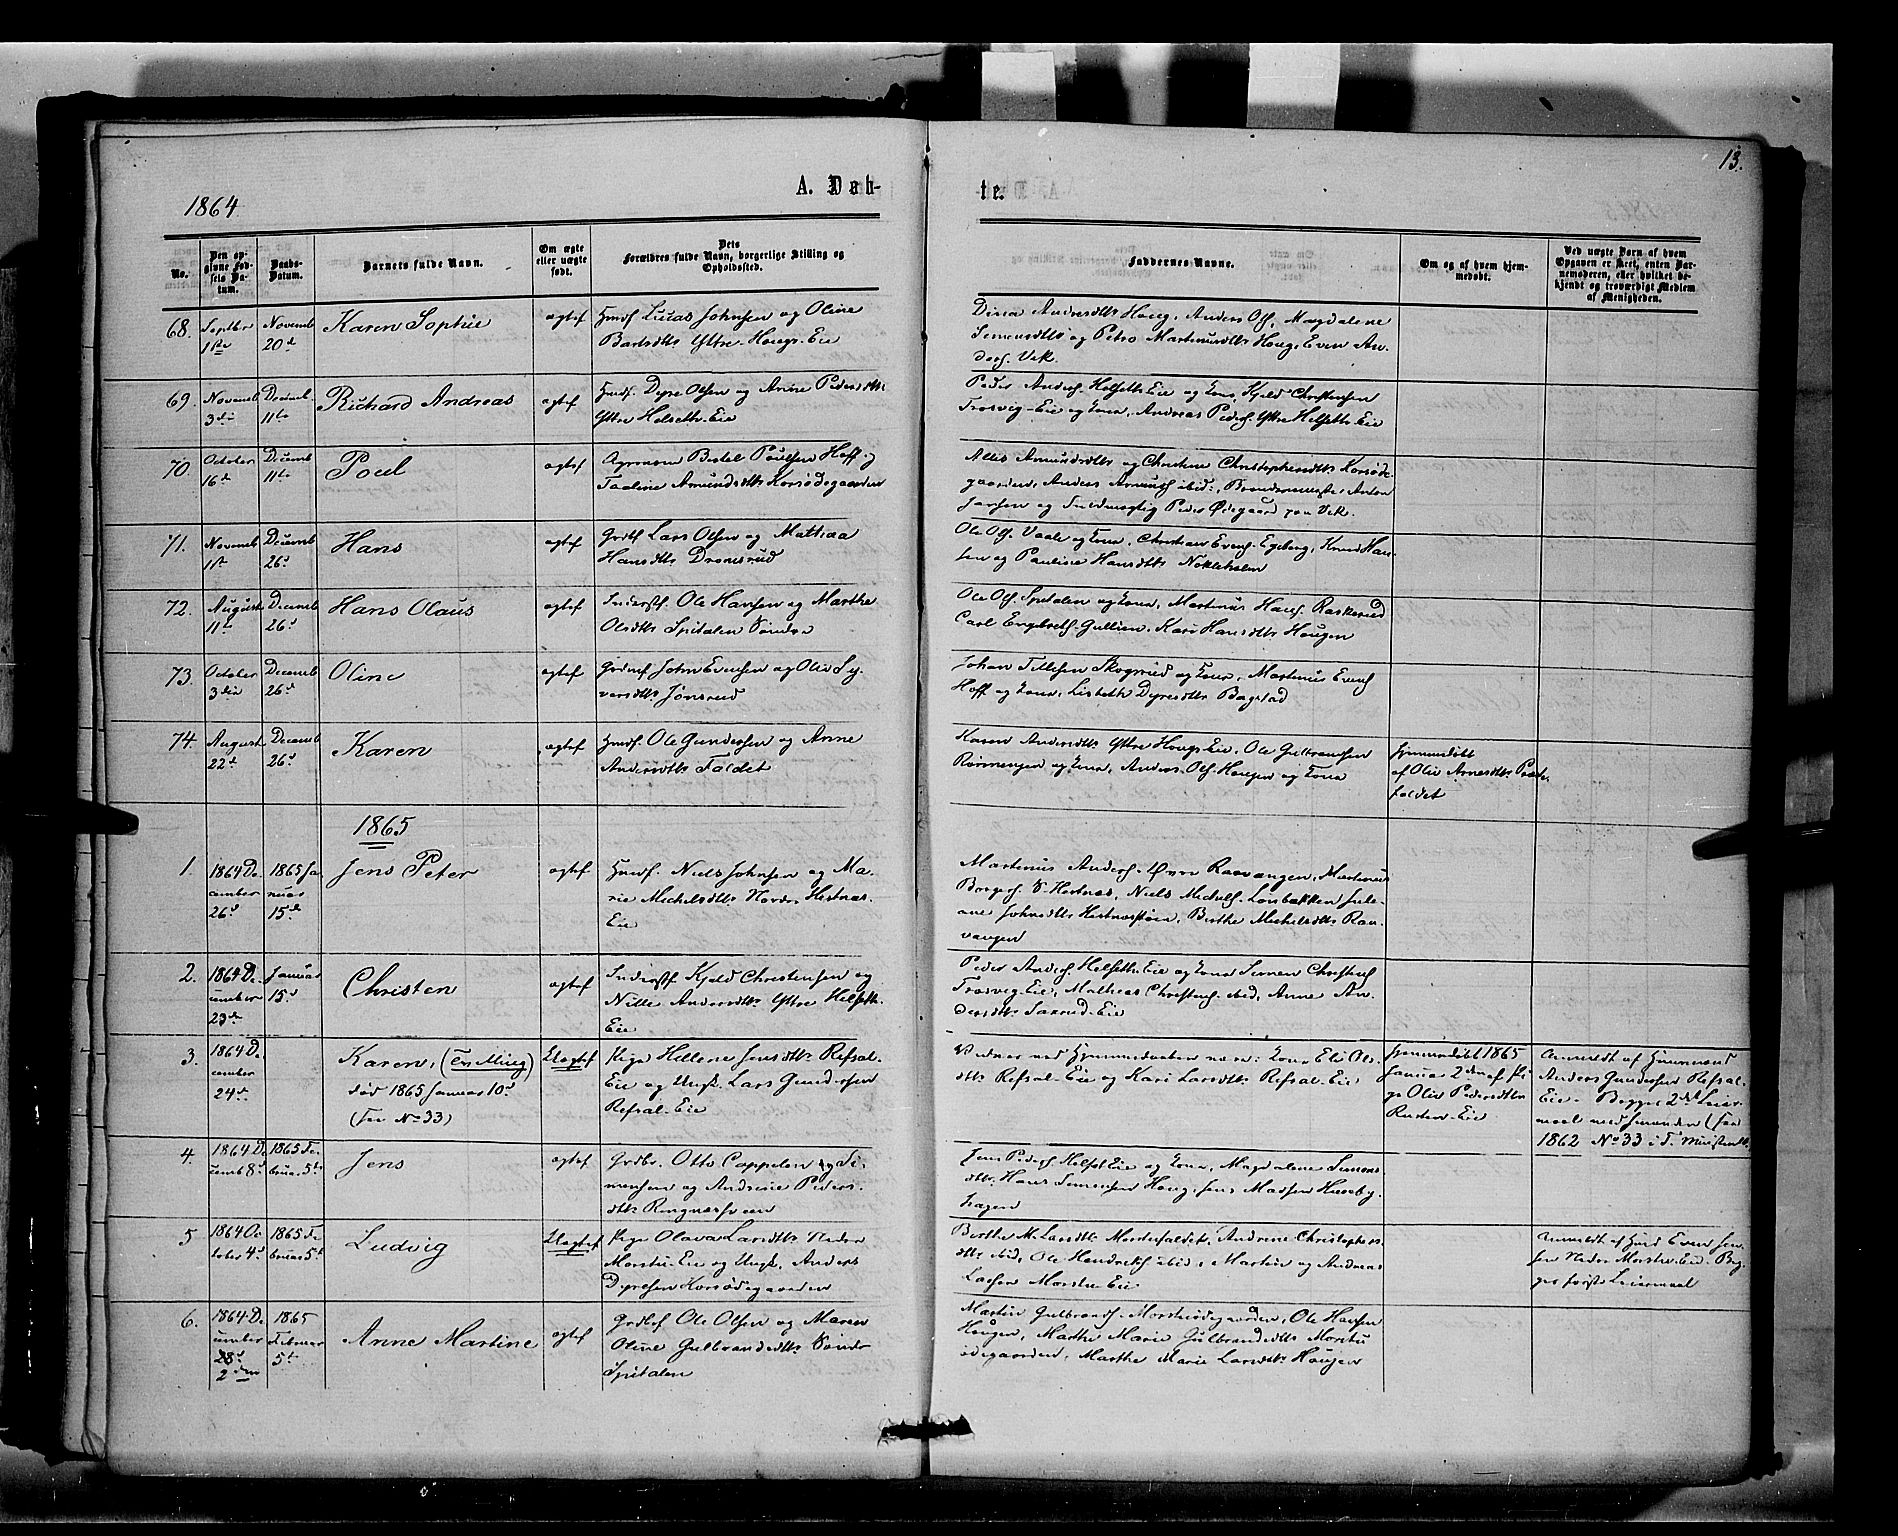 13.
A. Døb-
te.
1864
No.
Den op-
givne Fød-
sels Da-
tum.
Daabs-
Datum.
Barnets fulde Navn.
Om ægte
eller uægte
født.
Dets
Forældres fulde Navn, borgerlige Stilling og
Opholdssted.
Faddernes Navne.
Om og af hvem hjem-
medøbt.
Ved uægte Barn af hvem
Opgaven er skeet, enten Bar-
nemoderen, eller hvilket be-
kjendt og troværdigt Medlem
af Menigheden.
68.
Septbr
1ste
Novemb
20d
Karen Sophie
ægtef
Huusf. Lucas Johnsen og Oline
Bartsdttr Yttre Hougs-Eie
Andersdttr Houg, Anders Ols. Magdalene
Simensdttr og Petro Martinusdttr Houg, Even An-
ders. Vek.
69.
Novemb
3die
Decemb
11te
Richard Andreas
ægtef
Huusf. Dyre Olsen og Anne Pedersdttr
Yttre Helseth-Eie
Peder Anders. Helseth Eie og Kone, Kjeld Christensen
Trosvig-Eie og Kone, Andreas Peders. Yttre Helseth-Eie
70
October
16d
Decemb
11te
Poul
ægtef
Bertel Poulsen Hoff og
Amundsdttr Korsødegaarden
Amundsdttr og Christine Christophersdttr Korsøde-
gaarden, Anders Amunds. ibid:, Anton
Jansen og Peder Ødegaard paa Vek.
71.
Novemb
1ste
Decemb
26d
Hans
ægtef
Grdbf. Lars Olsen og Mathea
Hansdttr Dromsrud
Ole Ols. Vaale og Kone, Christian Evens. Egeberg, Knud Han-
sen og Pauline Hansdttr Nokleholm
72.
August
11te
Decemb
26d
Hans Olaus
ægtef
Inderstf. Ole Hansen og Marthe
Olsdttr Spitalen Søndre
Ole Ols. Spitalen og Kone, Martinus Hans. Raskerud
Carl Engebreths. Gullien, Kari Hansdttr Haugen
73.
October
3die
Decemb
26d
Oline
ægtef
Grdmf. John Evensen og Olia Sy-
versdttr Jønsrud
Johan Tillesen Skogsrud og Kone, Martinus Evens.
Hoff og Kone, Lisbeth Dyresdttr Bagstad
74.
August
22d
Decemb
26d
Karen
ægtef
Huusf. Ole Gundersen og Anne
Andersdttr Faldet
Karen Andersdttr Yttre Hougs Eie, Ole Gulbrandsen
Rørmengen og Kone, Anders Ols. Haugen og Kone
Hjemmedøbt
af Olia Arnesdttr
faldet
1865
1.
1864 De-
cember
26d
1865 Ja-
nuar
15d
Jens Peter
ægtef
Huusf. Niels Johnsen og Ma-
rie Michelsdttr Nordre Hestnæs-
Eie
Martinus Anders. Øvre Raavangen, Martinus
Borges. S. Hestnæs, Niels Michels. Lønbakken Jule-
ane Johnsdttr Hestnæsstøen, Berthe Michelsdttr Raa-
vangen
2.
1864 De-
cember
23de
Januar
15d
Christen
ægtef
Inderstf. Kjeld Christensen og
Nille Andersdttr Yttre Helseth-
Eie
Peder Anders. Helseth Eie og Kone Simen Christens.
Trosvig-Eie, Mathias Christens. ibid, Anne An-
dersdttr Saxrud-Eie
3.
1864 De-
cember
24de
Karen, (Tvilling)
død 1865 Januar 10d
(See No 33)
Uægtef
Pige Hellene Jensdttr Refsal-
Eie og Ungk. Lars Gundersen
Refsal-Eie
Vidner ved Hjemmedaaben vare: Kone Eli Ols-
dttr Refsal-Eie og Kari Larsdttr Refsal-Eie
Hjemmedøbt 1865
Januar 2den af Pi-
ge Olia Pedersdttr
Rusten-Eie
Anmeldt af Huusmand
Anders Gundersen Refsal-
Eie. Begges 2det Leier-
maal med hinanden (See
1862 No 33 i T. Ministerialb.
4.
1864 De-
cemb 8d
1865 Fe-
bruar 5te
Jens
ægtef
Grdbr. Otto Cappelen Si-
mensen og Andrine Peders-
dttr Ringnæssveen
Jens Peders. Helset Eie og Kone, Magdalene Simens-
dttr, Hans Simensen Houg, Jens Madsen Huseby-
hagen
5
1864 Oc-
tober 4d
1865 Fe-
bruar 5te
Ludvig
Uægtef
Pige Olava Larsdttr Nedre
Morstu-Eie og Ungk. Anders
Dyresen Korsødegaarden
Berthe M. Larsdttr Mordesfaldet, Andrine Christophers-
dttr ibid, Ole Hendriks. ibid, Martin og Andreas
Larsen Morstu-Eie
Anmeldt af Huusf. Even Jen-
sen Nedre Morstu-Eie. Beg-
ges første Leiermaal
6.
1864 De-
cember
28d
2den
1865
Februar
5te
Anne Martine
ægtef
Grdbf. Ole Olsen og Maren
Oline Gulbrandsdttr Søndre
Spitalen
Martin Gulbrands. Morstuødegaarden, Ole Hansen
Haugen, Marthe Marie Gulbrandsdttr Morstu-
ødegaarden, Marthe Marie Larsdttr Haugen